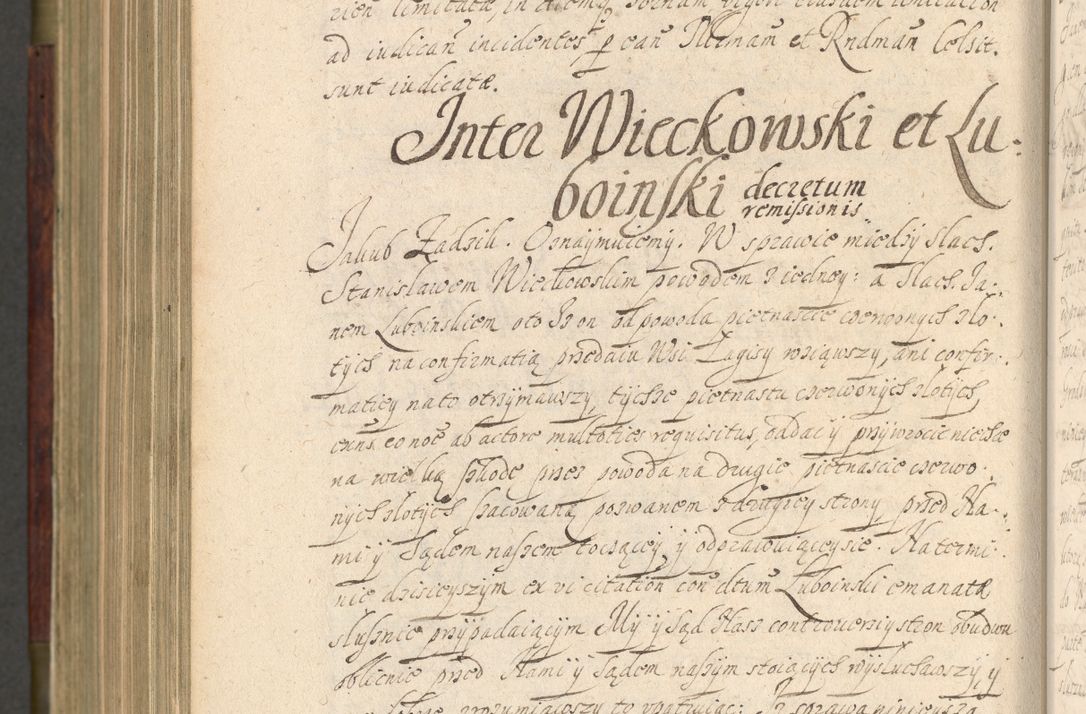 ad iudicań incidentes p ean Illrmam et Rndmam Celsit.
sunt iudicatæ.
Inter Wieckowski et Lu-
boinski decretum
remissionis
Jakub Zadzik. Oznaymuiemy. W sprawie miedzy Slach.
Stanislawem Wieckowskim powodem z iedney: a Slach. Ja-
nem Luboinskiem oto Jz on od powoda pietnascie czerwonych zlo-
tych na confirmatią przedaiu Wsi Lagisy wziąwszy, ani confir-
matiey na to otrzymawszy, tychze pietnastu czerwonych zlotych,
eums eo noe ab actore multoties requisitus, oddac y przywrocic niechce
na wielką szkodę przez powoda na drugie pietnascie czerwo-
nych zlotych szacowaną, pozwanem z drugiey strony, przed Na-
mi y Sądem naszem toczącey y odprawuiąceysie. Na termi-
nie dzisieyszym ex vi citation con dtum Luboinski emanatæ
slusznie przypadaiącym My y Sąd Nasz controuersiy stron obudwu
oblicnie przed Nami y Sądem naszym stoiących wysluchawszy, y